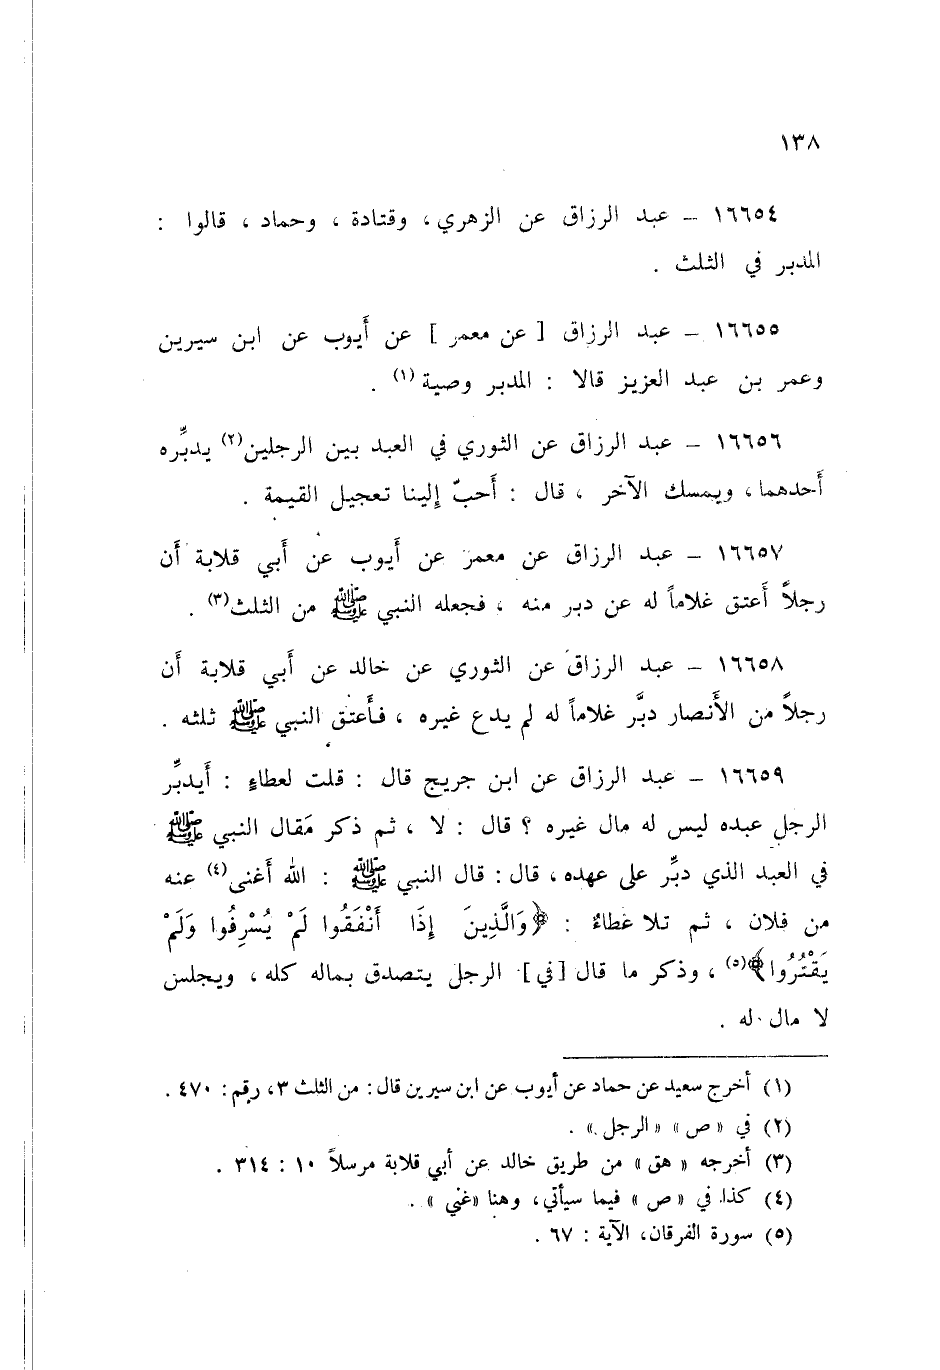 ١٣٨
١٦٦٥٤ – عبد الرزاق عن الزهري، وقتادة ، وحماد ، قالوا :
المدبر في الثلث .
١٦٦٥٥ – عبد الرزاق [ عن معمر ] عن أيوب عن ابن سيرين
وعمر بن عبد العزيز قالا : المدبر وصية (١) .
١٦٦٥٦ – عبد الرزاق عن الثوري في العبد بين الرجلين(٢) يدبِّره
أحدهما، ويمسك الآخر ، قال : أحبّ إلينا تعجيل القيمة .
١٦٦٥٧ – عبد الرزاق عن معمر عن أيوب عن أبي قلابة أن
رجلاً أعتق غلاماً له عن دبر منه ، فجعله النبي ﷺ من الثلث(٣) .
١٦٦٥٨ – عبد الرزاق عن الثوري عن خالد عن أبي قلابة أن
رجلاً من الأنصار دبَّر غلاماً له لم يدع غيره ، فأعتق النبي ﷺ ثلثه .
١٦٦٥٩ – عبد الرزاق عن ابن جريج قال : قلت لعطاءٍ : أيدبِّر
الرجل عبده ليس له مال غيره ؟ قال : لا ، ثم ذكر مَقال النبي ﷺ
في العبد الذي دبِّر على عهده، قال : قال النبي ﷺ : الله أغنى(٤) عنه
من فلان ، ثم تلا عطاءٌ : ﴿وَالَّذِينَ إِذَا أَنْفَقُوا لَمْ يُسْرِفُوا وَلَمْ
يَقْتُرُوا﴾(٥) ، وذكر ما قال [في] الرجل يتصدق بماله كله ، ويجلس
لا مال له .
(١) أخرج سعيد عن حماد عن أيوب عن ابن سيرين قال : من الثلث ٣، رقم : ٤٧٠ .
(٢) في «ص» «الرجل» .
(٣) أخرجه «هق» من طريق خالد عن أبي قلابة مرسلاً ١٠ : ٣١٤ .
(٤) كذا في «ص» فيما سيأتي، وهنا «غني» .
(٥) سورة الفرقان، الآية : ٦٧ .